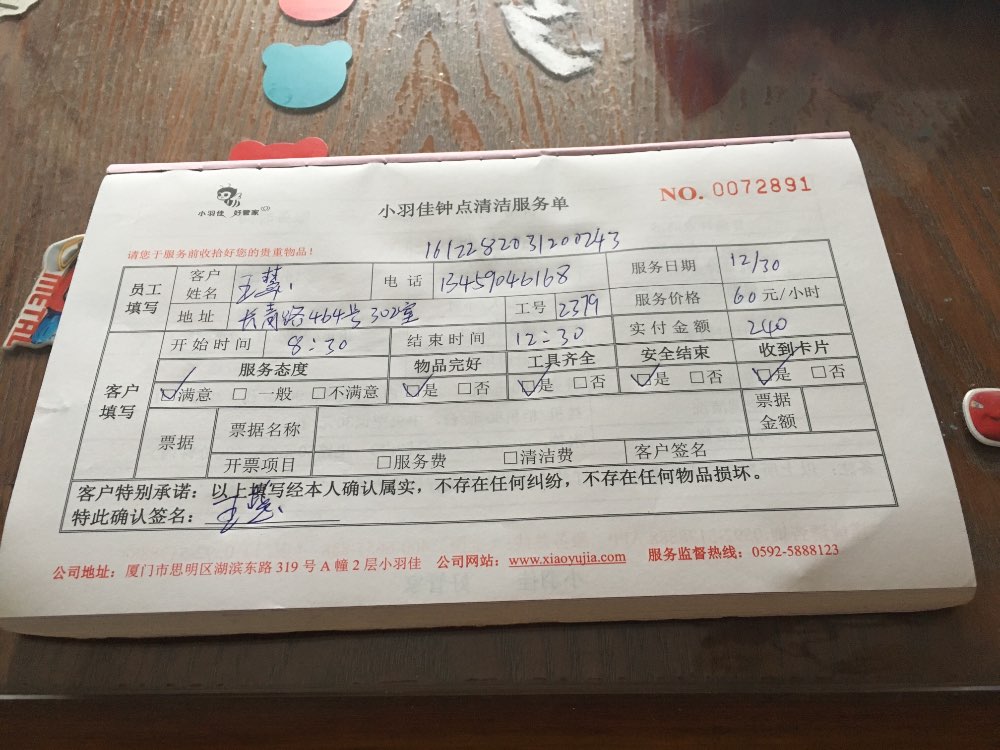 小羽佳 好管家
小羽佳钟点清洁服务单
NO. 0072891
请您于服务前收拾好您的贵重物品！
1612282031200243
员工填写 客户姓名 王慧 电话 13459046168 服务日期 12/30
地址 长青路464号302室 工号 2379 服务价格 60元/小时
客户填写 开始时间 8:30 结束时间 12:30 实付金额 240
服务态度 物品完好 工具齐全 安全结束 收到卡片
☑满意 □一般 □不满意 ☑是 □否 ☑是 □否 ☑是 □否 ☑是 □否
票据 票据名称 票据金额
开票项目 □服务费 □清洁费 客户签名
客户特别承诺：以上填写经本人确认属实，不存在任何纠纷，不存在任何物品损坏。
特此确认签名：王慧
公司地址：厦门市思明区湖滨东路319号A幢2层小羽佳 公司网站：www.xiaoyujia.com 服务监督热线：0592-5888123